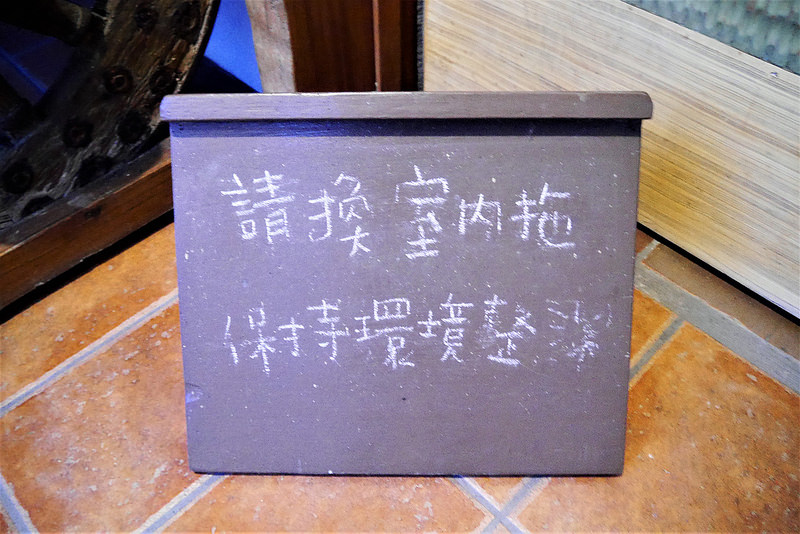 請換室內拖
保持環境整潔